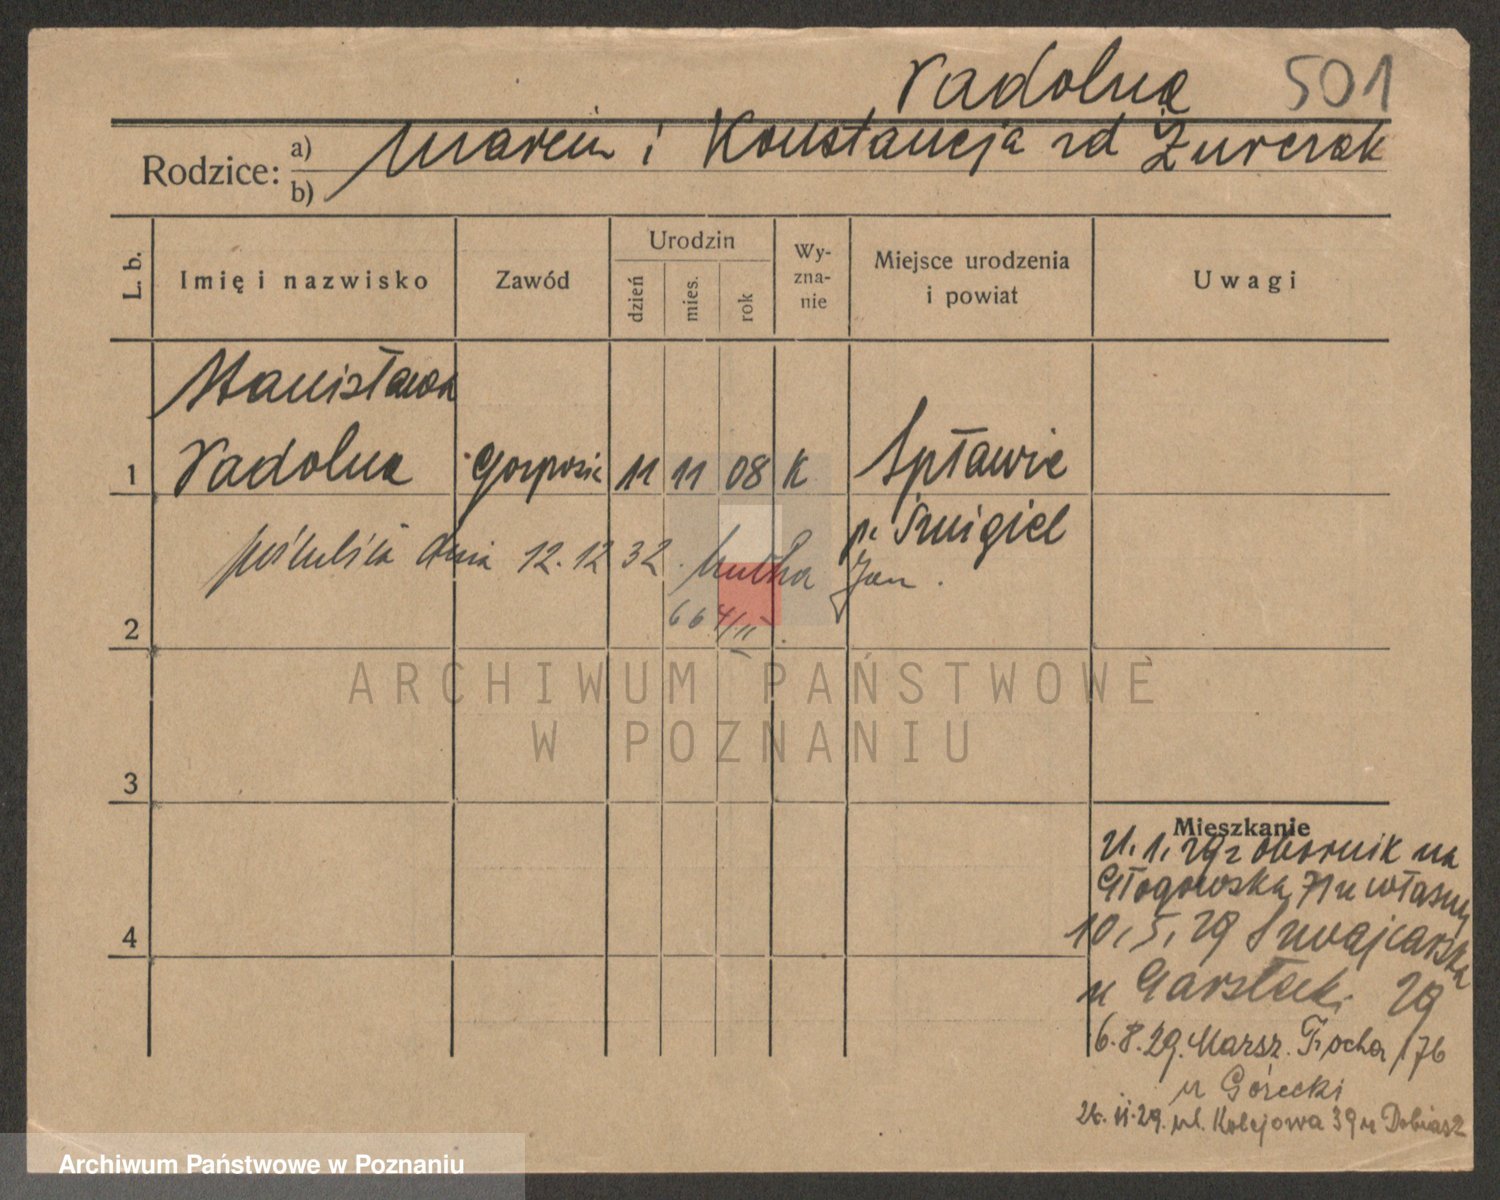 Nadolna 501
Rodzice: a) b) Marcin i Konstancja zd Żurczak
L. b.
Imię i nazwisko
Zawód
Urodzin
dzień
mies.
rok
Wy-
zna-
nie
Miejsce urodzenia
i powiat
Uwagi
Stanisława
1 Nadolna Gosposia 11 11 08 K Spławie
p. Śmigiel
poślubiła dnia 12.12 32. Jan.
664/II.
2
ARCHIWUM PAŃSTWOWE
W POZNANIU
3
Mieszkanie
21.1.29 z Obornik na
Głogowską 71 u własny
4
10.5.29 Szwajcarska
u Garstecki 29
6.8.29. Marsz. Focha 176
u Górecki
26.11.29. ul. Kolejowa 39 u Dobiasz
Archiwum Państwowe w Poznaniu